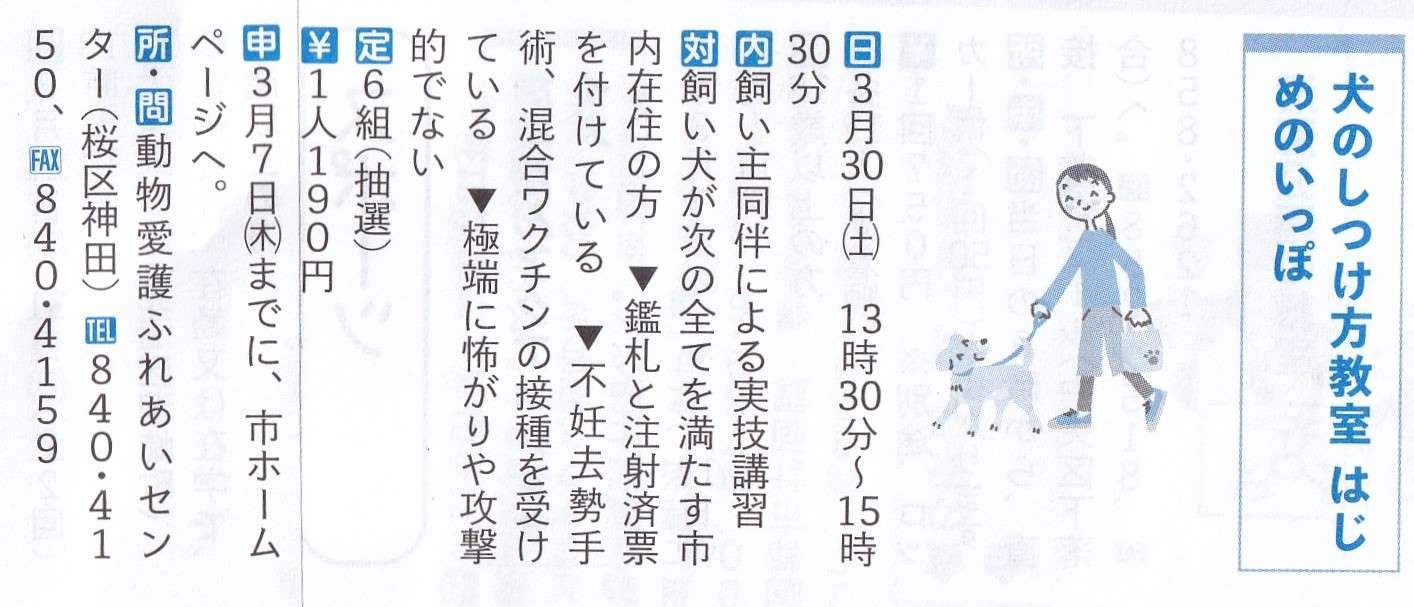 犬のしつけ方教室 はじ
めのいっぽ
日3月30日㈯ 13時30分～15時
30分
内飼い主同伴による実技講習
対飼い犬が次の全てを満たす市
内在住の方 ▼鑑札と注射済票
を付けている ▼不妊去勢手
術、混合ワクチンの接種を受け
ている ▼極端に怖がりや攻撃
的でない
定6組(抽選)
￥1人190円
申3月7日㈭までに、市ホーム
ページへ。
所・問動物愛護ふれあいセン
タ―(桜区神田) TEL840・41
50、FAX840・4159